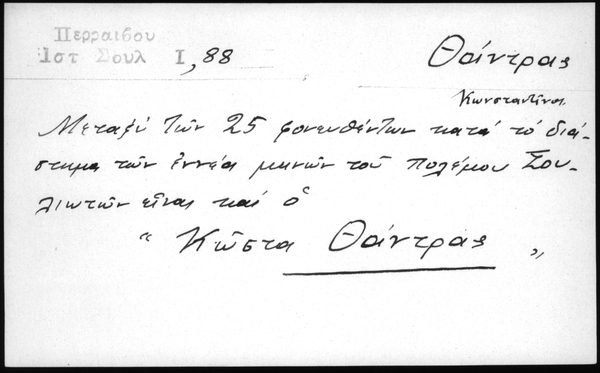 Περραιβου
Ιστ Σουλ Ι, 88
Θάντρας
Κωνσταντῖνος
Μεταξύ τῶν 25 φονευθέντων κατά τό διά-
στημα τῶν ἐννέα μηνῶν τοῦ πολέμου Σου-
λιωτῶν εἶναι καί ὁ
“ Κώστα Θάντρας ”